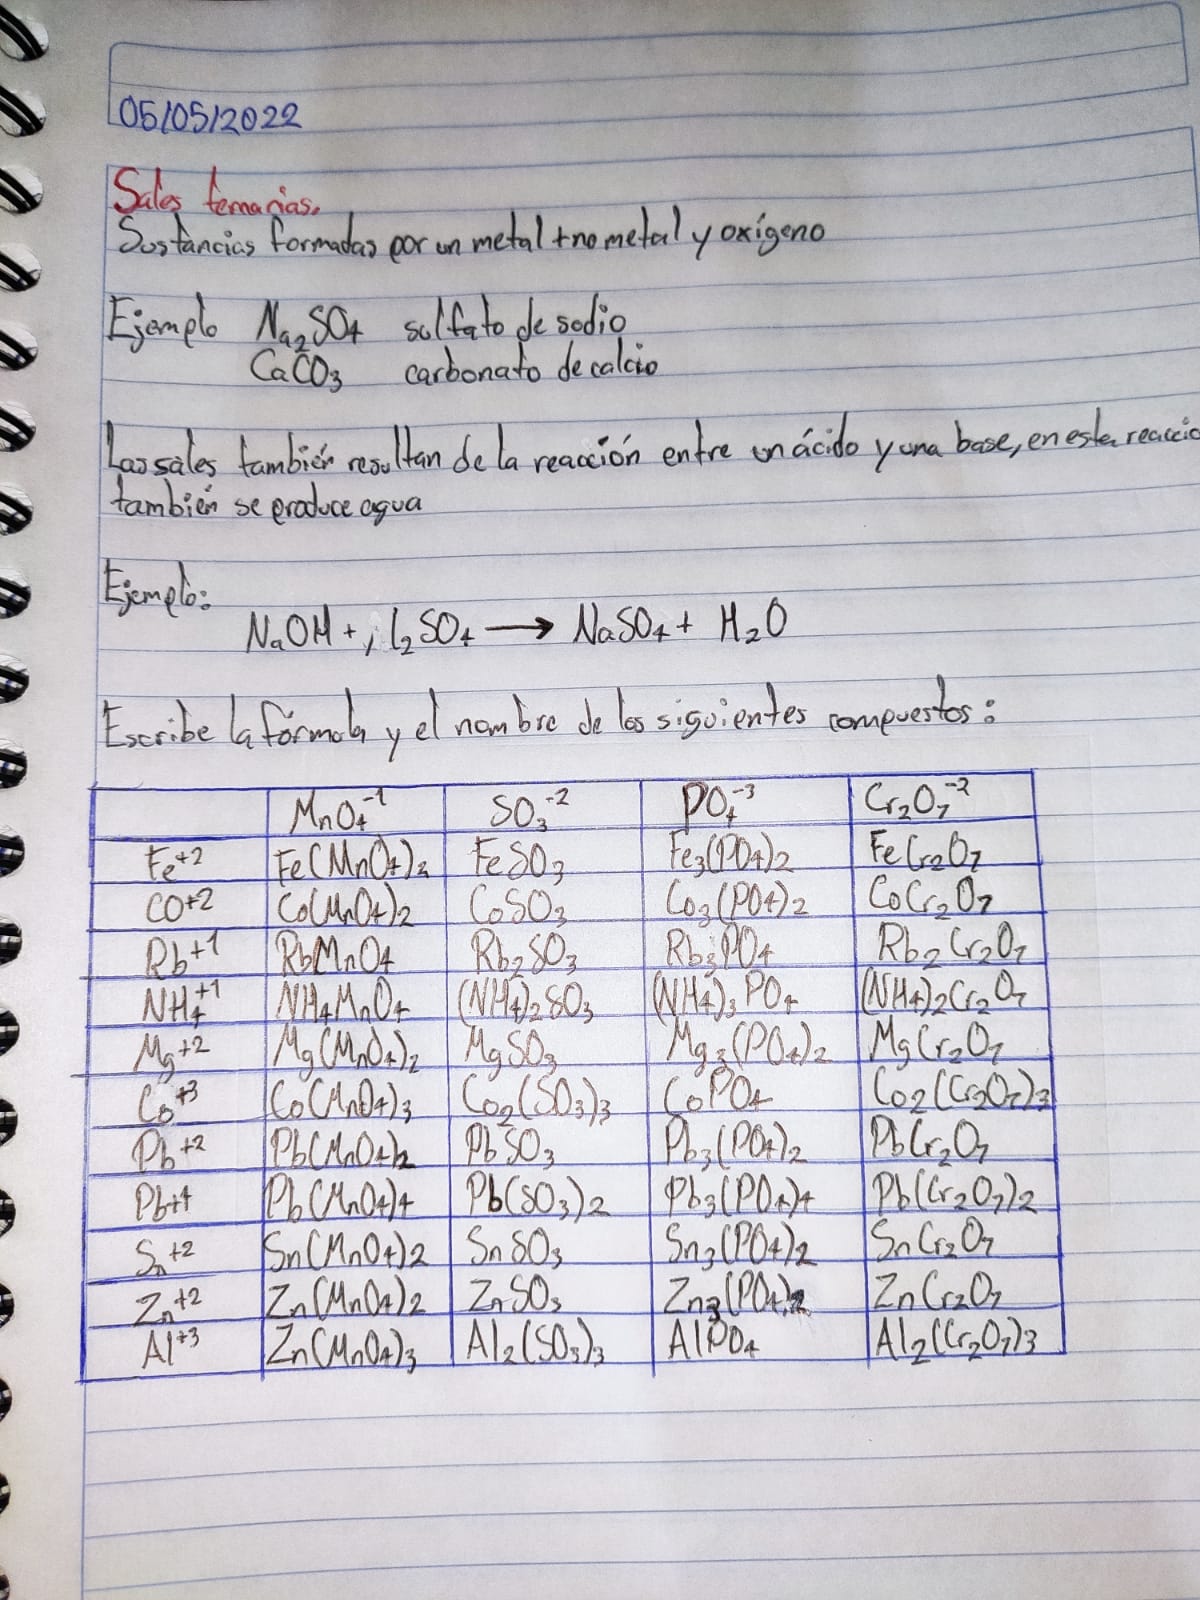 05/05/2022
Sales ternarias.
Sustancias formadas por un metal + no metal y oxígeno
Ejemplo Na₂SO₄ sulfato de sodio
CaCO₃ carbonato de calcio
Las sales también resultan de la reacción entre un ácido y una base, en esta reacció
también se produce agua
Ejemplo:
NaOH + ₂SO₄ → NaSO₄ + H₂O
Escribe la fórmula y el nombre de los siguientes compuestos:
MnO₄⁻¹ SO₃⁻² PO₄⁻³ Cr₂O₇⁻²
Fe⁺² Fe(MnO₄)₂ FeSO₃ Fe₃(PO₄)₂ FeCr₂O₇
CO⁺² Co(MnO₄)₂ CoSO₃ Co₃(PO₄)₂ CoCr₂O₇
Rb⁺¹ RbMnO₄ Rb₂SO₃ Rb₃PO₄ Rb₂Cr₂O₇
NH₄⁺¹ NH₄MnO₄ (NH₄)₂SO₃ (NH₄)₃PO₄ (NH₄)₂Cr₂O₇
Mg⁺² Mg(MnO₄)₂ MgSO₃ Mg₃(PO₄)₂ MgCr₂O₇
Co⁺³ Co(MnO₄)₃ Co₂(SO₃)₃ CoPO₄ Co₂(Cr₂O₇)₃
Pb⁺² Pb(MnO₄)₂ PbSO₃ Pb₃(PO₄)₂ PbCr₂O₇
Pb⁺⁴ Pb(MnO₄)₄ Pb(SO₃)₂ Pb₃(PO₄)₄ Pb(Cr₂O₇)₂
Sn⁺² Sn(MnO₄)₂ SnSO₃ Sn₃(PO₄)₂ SnCr₂O₇
Zn⁺² Zn(MnO₄)₂ ZnSO₃ Zn₃(PO₄)₂ ZnCr₂O₇
Al⁺³ Zn(MnO₄)₃ Al₂(SO₃)₃ AlPO₄ Al₂(Cr₂O₇)₃